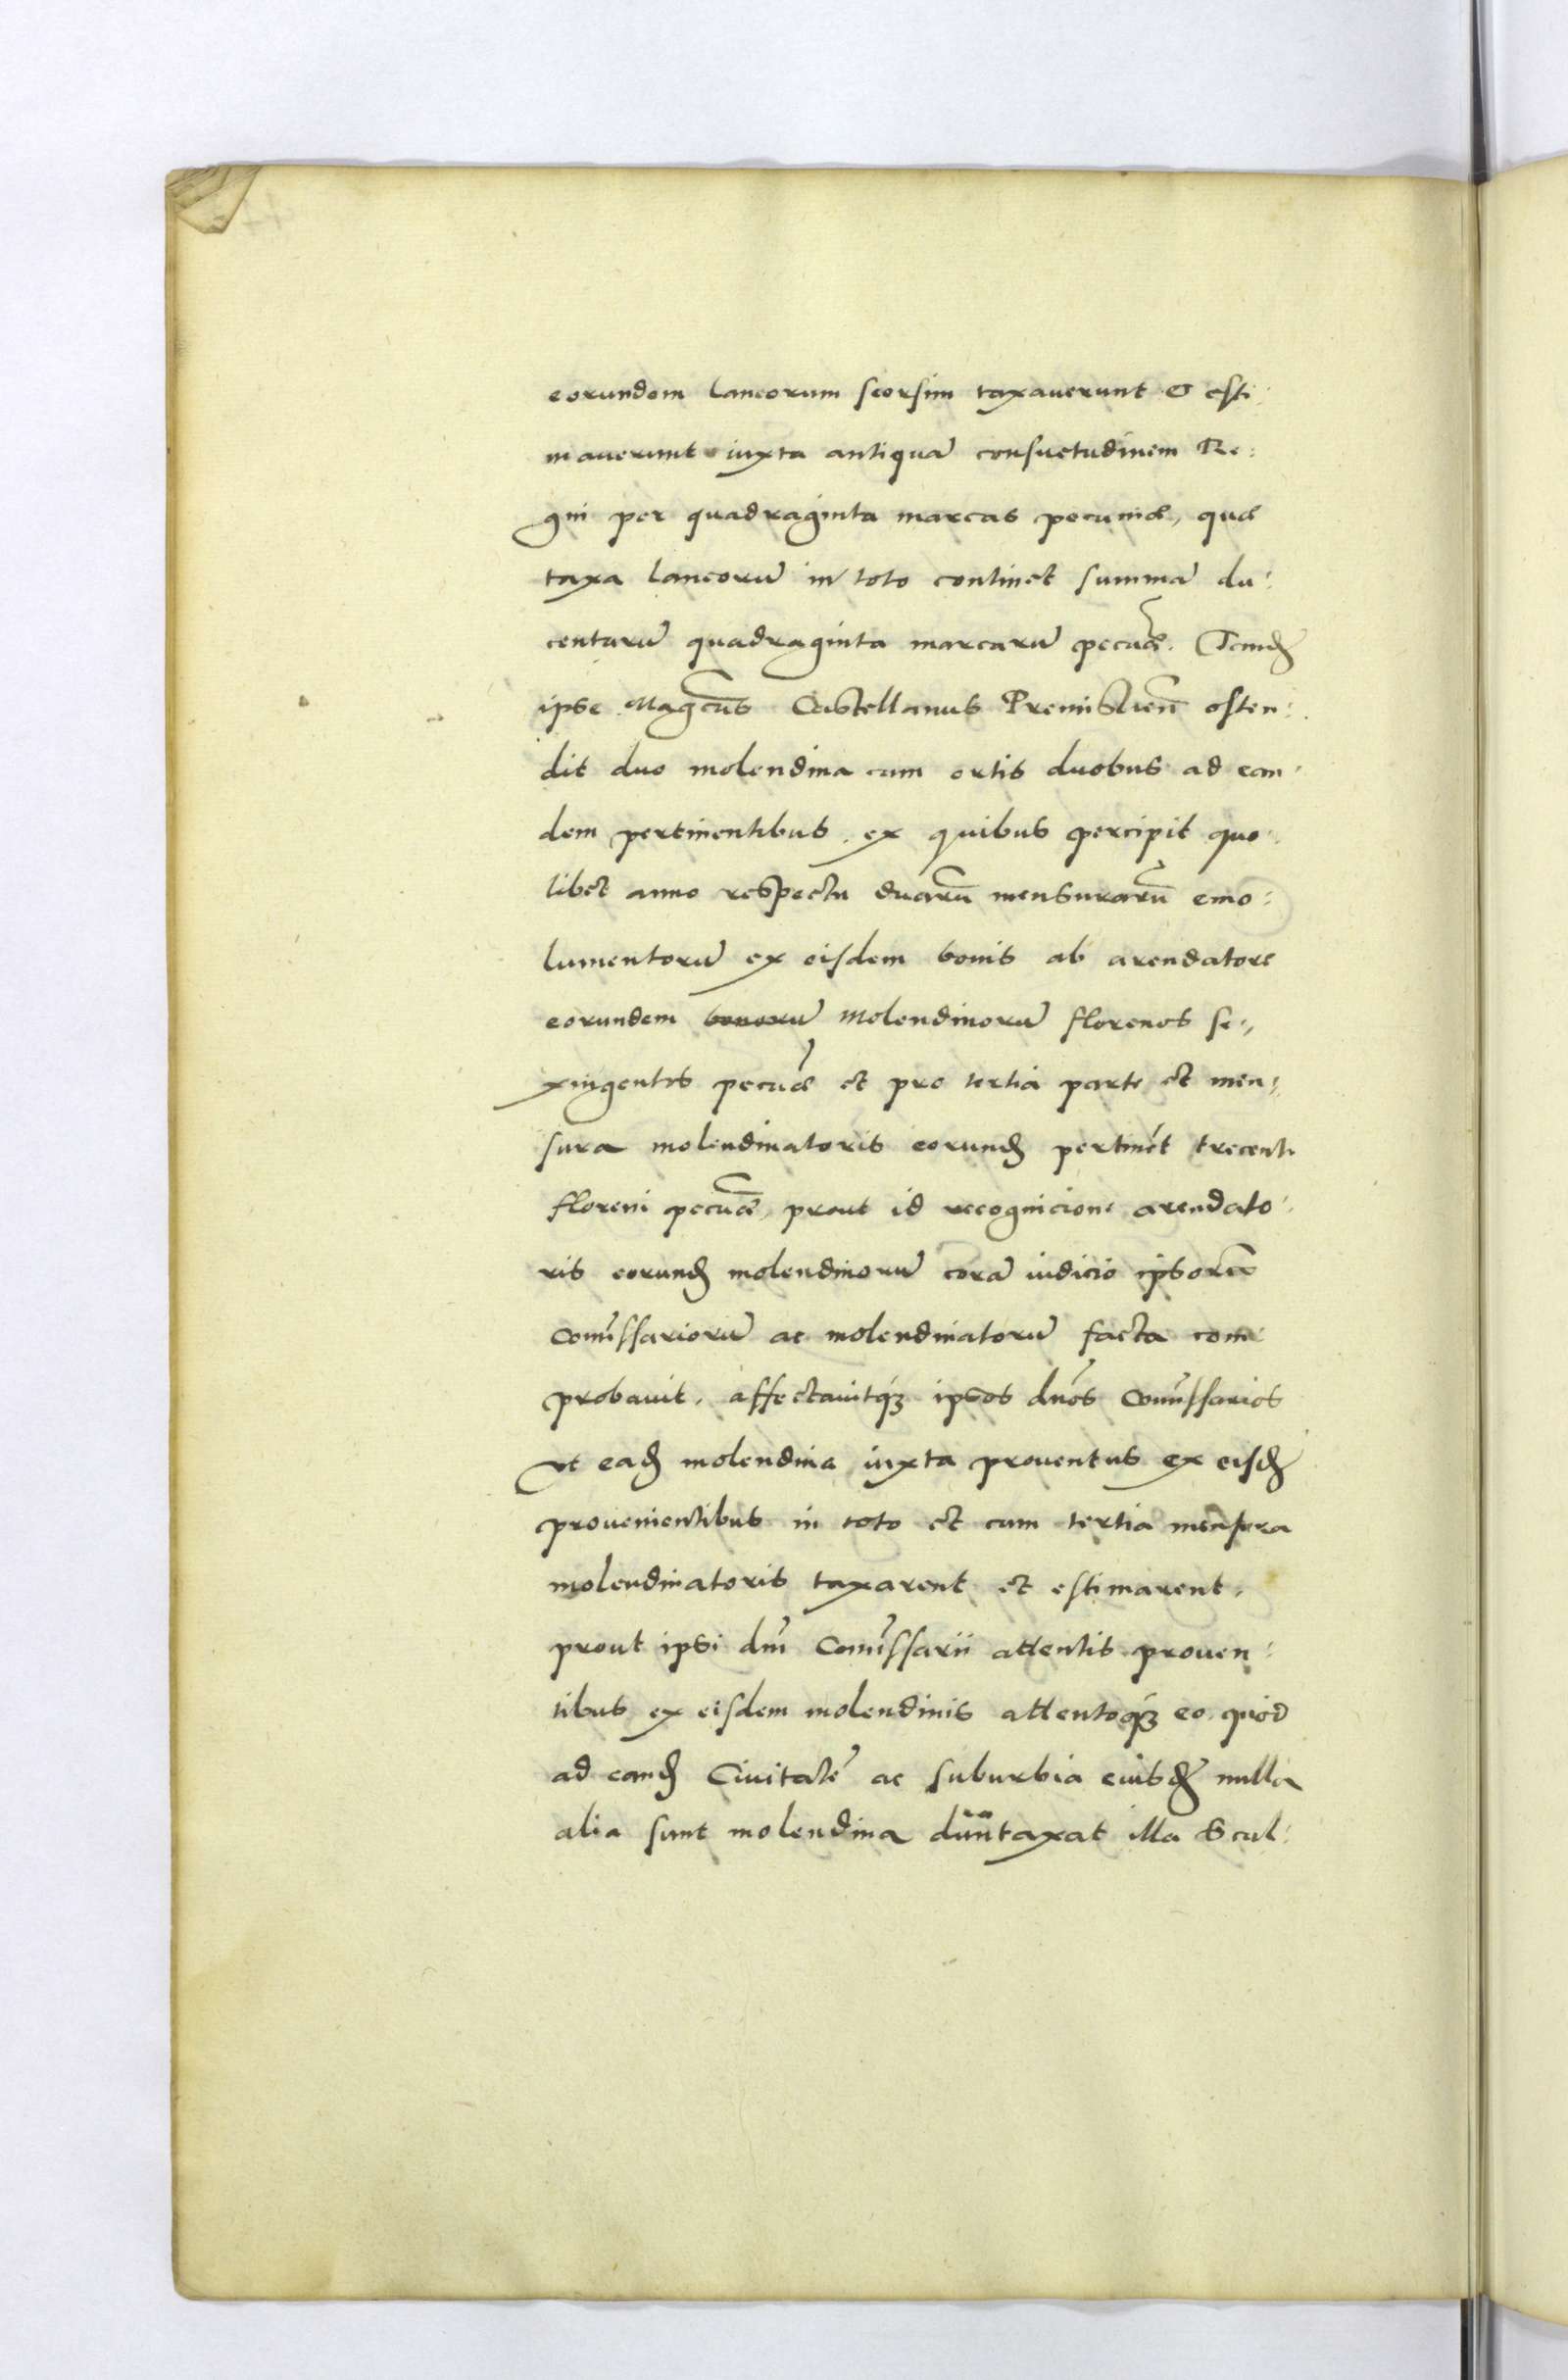 eorundem laneorum seorsim taxauerunt & esti:
mauerunt iuxta antiquā consuetudinem Re:
gni per quadraginta marcas pecuniæ, quæ
taxa laneorū in toto continet summā du:
centarū quadraginta marcarū pecuæ. Itemq
ipse Magcūs Castellanus Premisliēn osten:
dit duo molendina cum ortis duobus ad ean:
dem pertinentibus, ex quibus percipit quo:
libet anno respectu duarū mensurarū emo:
lumentorū ex eisdem bonis ab arendatore
eorundem bonorū Molendinorū florenos se:,
xingentos pecuæ et pro tertia parte et men:,
sura molendinatoris eorund pertinēt trecenti
floreni pecuæ, prout id recognicione arendato:
ris eorund molendinorū corā iudicio ipsorū
Comissariorū ac molendinatorū facta com:
probauit, affectauitq3 ipsos dnos Comissarios
vt ead molendina iuxta prouentus ex eisd
prouenientibus in toto et cum tertia mensura
molendinatoris taxarent et estimarent,
prout ipsi dni Comissarii attentis prouen:
tibus ex eisdem molendinis attentoq3 eo, quod
ad eand Ciuitatē ac suburbia eiusd nulla
alia sunt molendina duntaxat illa Scul: